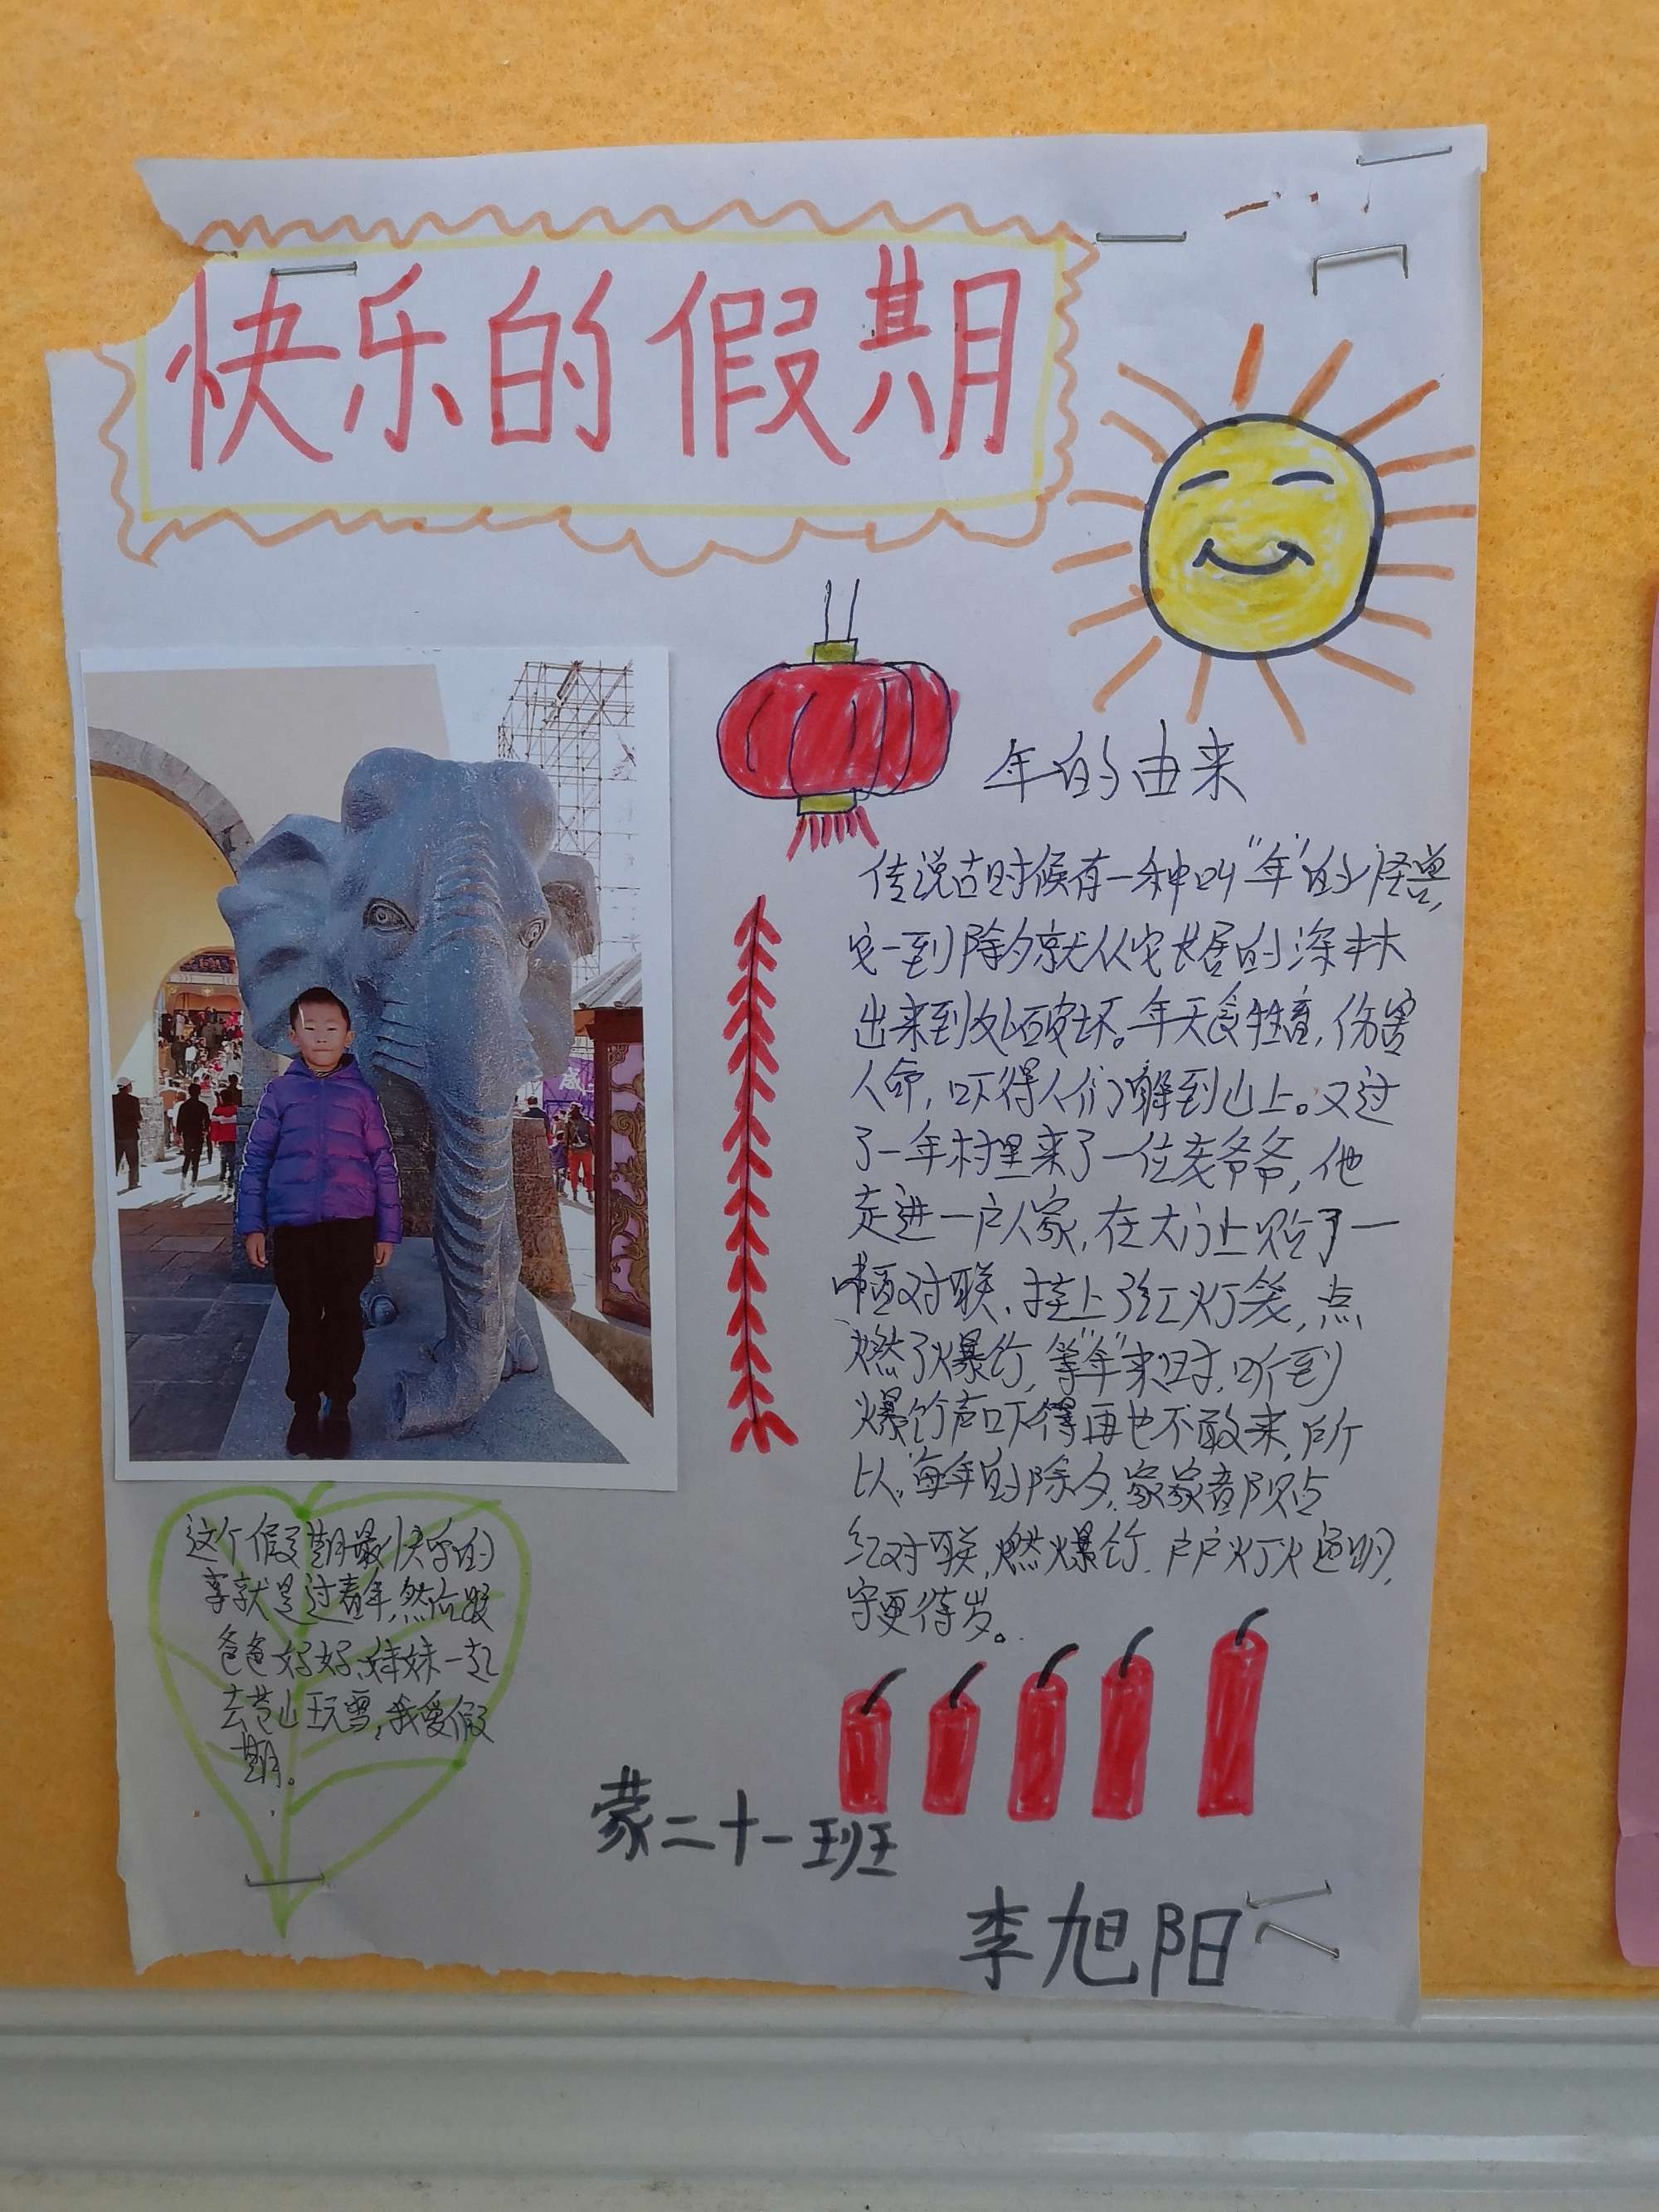 快乐的假期
年的由来
传说古时候有一种叫“年”的怪兽,
它一到除夕就从它长居的深林
出来到处破坏。年天食牲畜,伤害
人命,吓得人们躲到山上。又过
了一年村里来了一位老爷爷,他
走进一户人家,在大门上贴了一
幅对联、挂上了红灯笼,点
燃了爆竹,等“年”来时,听到
爆竹声吓得再也不敢来,所
以,每年的除夕,家家都贴
红对联,燃爆竹.户户灯火通明,
守更待岁。
这个假期最快乐的
事就是过春年,然后跟
爸爸妈妈、妹妹一起
去苍山玩雪,我爱假
期。
蒙二十一班
李旭阳
盛